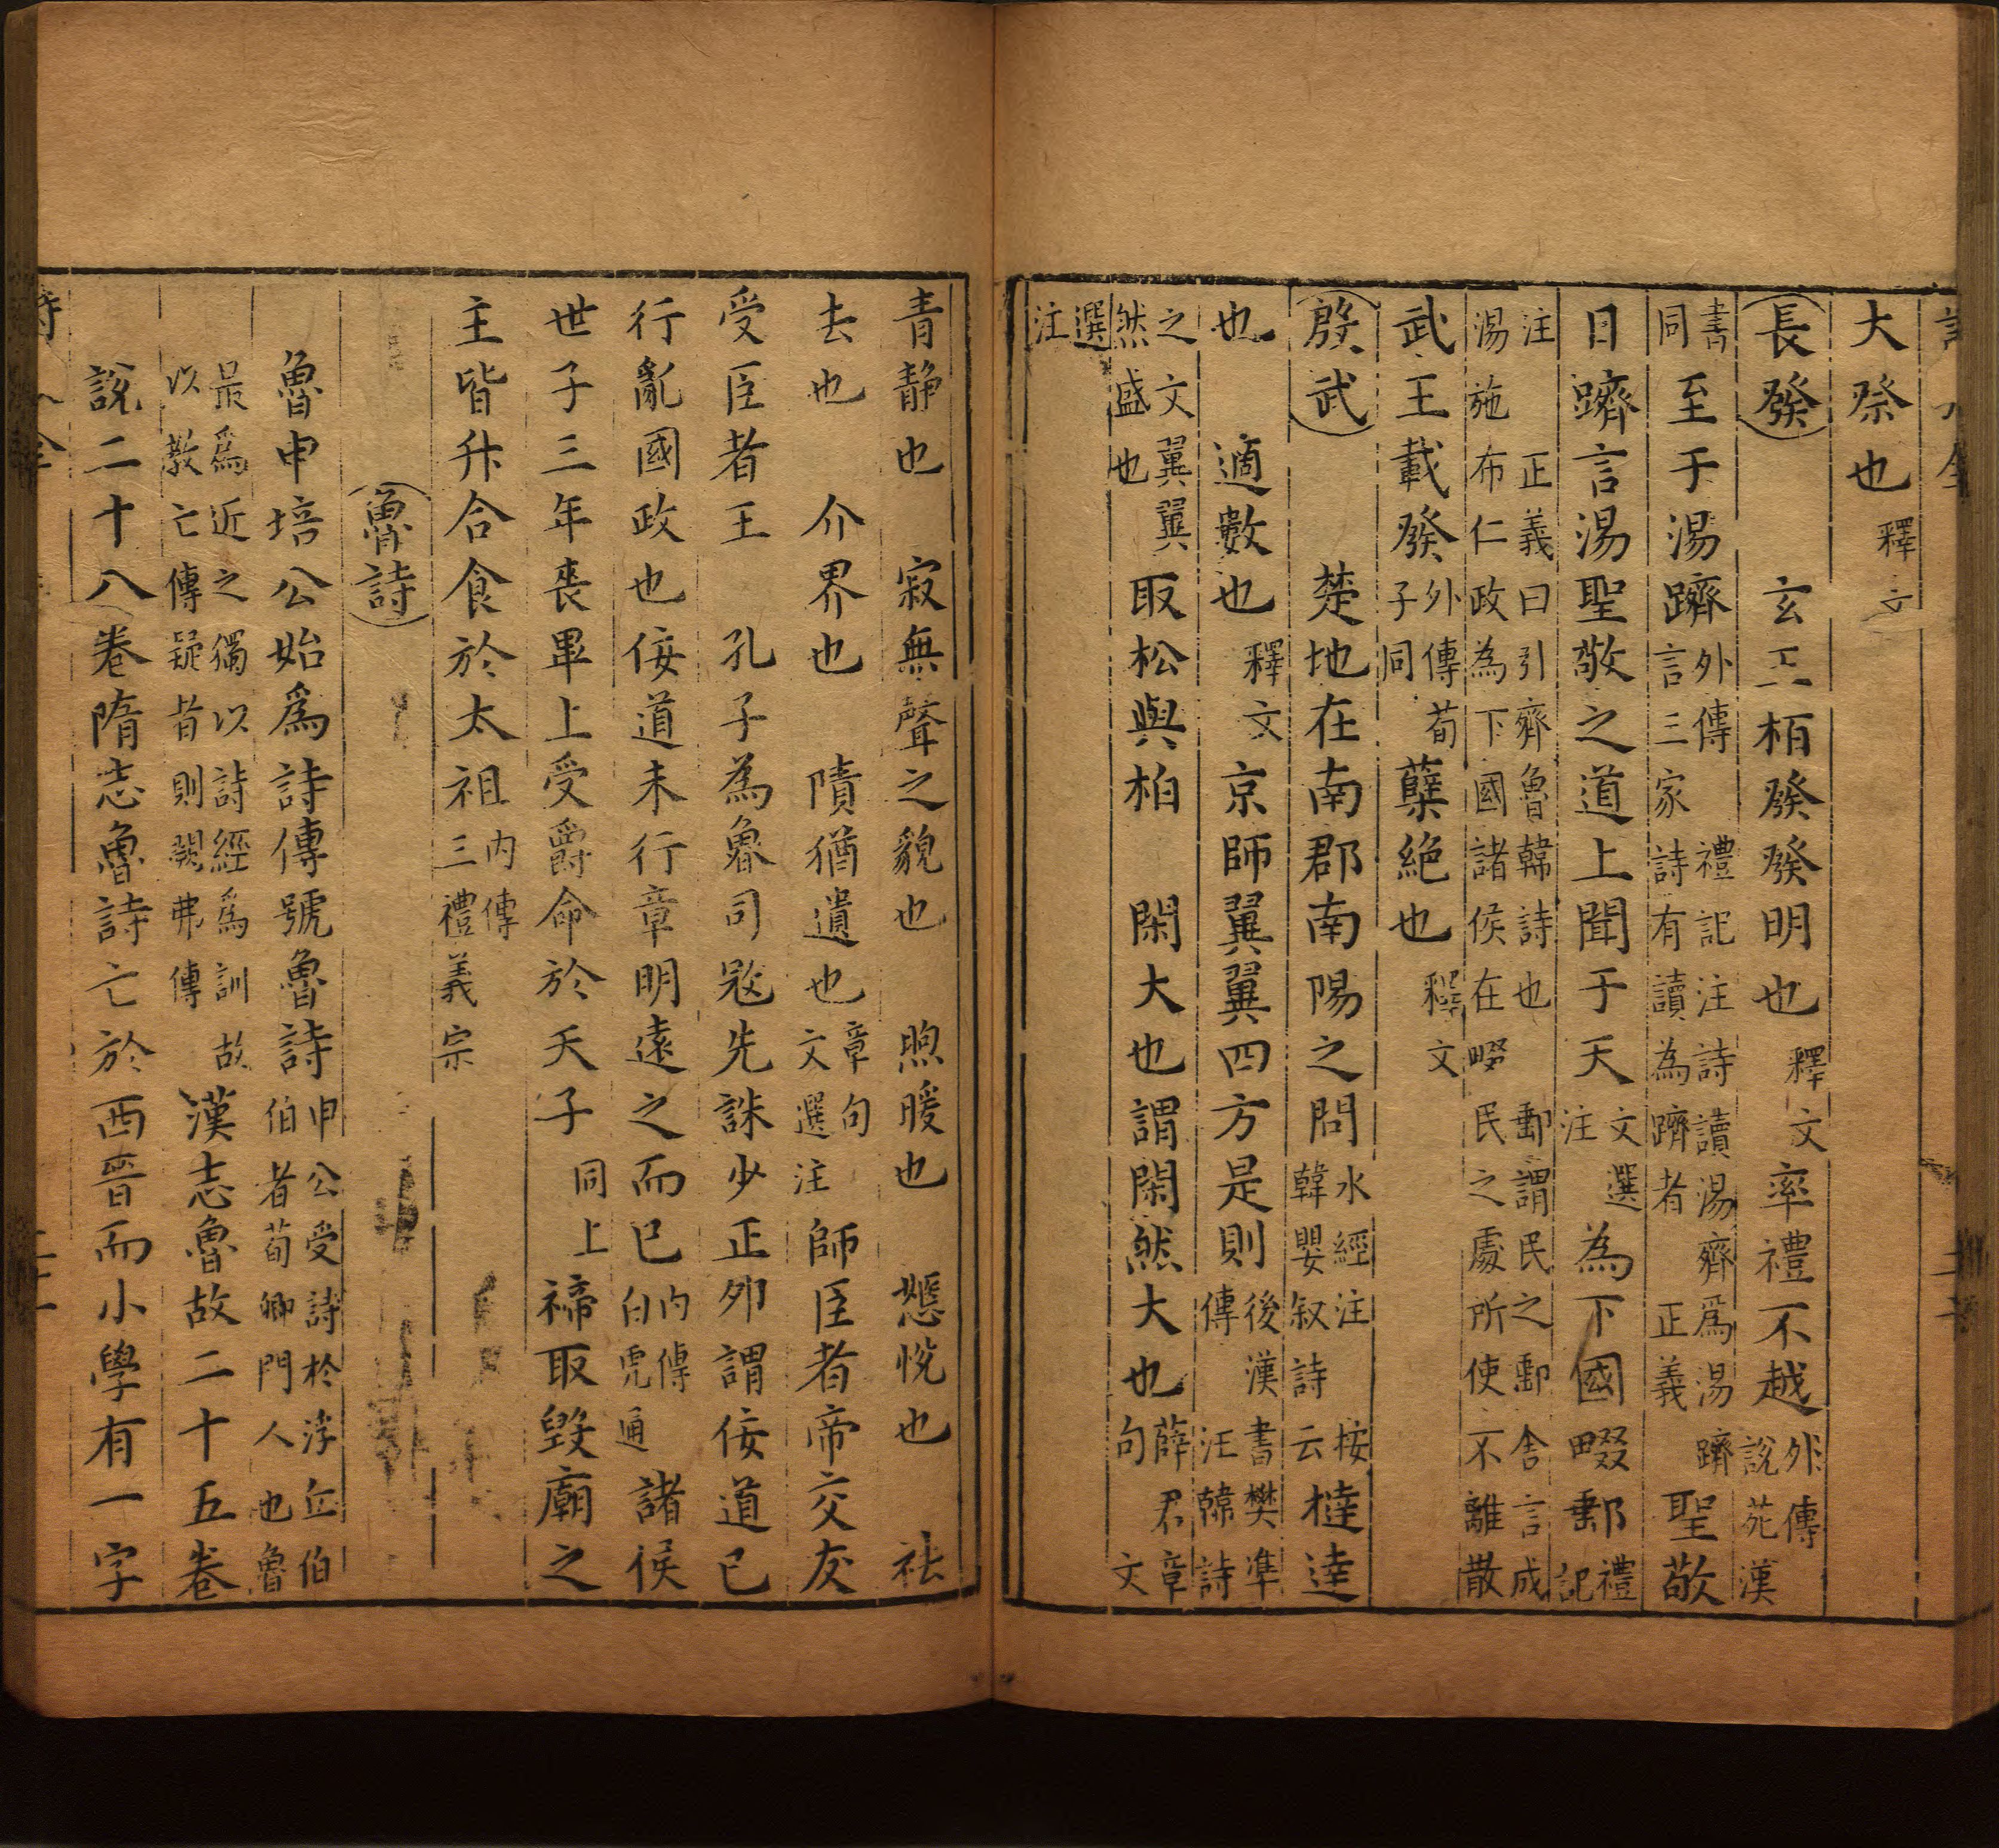 大祭也 釋文
長發 玄王栢發發明也 釋文 率禮不越 外傳 說苑漢
書同 至于湯躋 外傳 禮記注詩讀湯齊爲湯躋 言三家詩有讀為躋者 正義 聖敬
日躋言湯聖敬之道上聞于天 文選注 為下國畷郵 禮記
注 正義曰引齊魯韓詩也 郵謂民之郵舍言成湯施布仁政為下國諸侯在畷民之處所使不離散
武王載發 外傳荀子同 蘖絕也 釋文
殷武 楚地在南郡南陽之間 水經注 按韓嬰叙詩云 撻達
也 適數也 釋文 京師翼翼四方是則 後漢書樊準傳注韓詩
之文翼翼然盛也 取松與柏 閑大也謂閑然大也 薛君章句文
選注
青静也 寂無聲之貌也 煦暖也 㦤悅也 袪
去也 介界也 隤猶遺也 章句文選注 師臣者帝交友
受臣者王 孔子為魯司寇先誅少正夘謂佞道已
行亂國政也佞道未行章明遠之而已 內傳白虎通 諸侯
世子三年喪畢上受爵命於天子 同上 禘取毀廟之
主皆升合食於太祖 內傳三禮義宗
魯詩
魯申培公始爲詩傳號魯詩 申公受詩於浮丘伯伯者荀卿門人也魯
最爲近之獨以詩經爲訓故以教亡傳疑者則闕弗傳 漢志魯故二十五卷
說二十八卷隋志魯詩亡於西晉而小學有一字